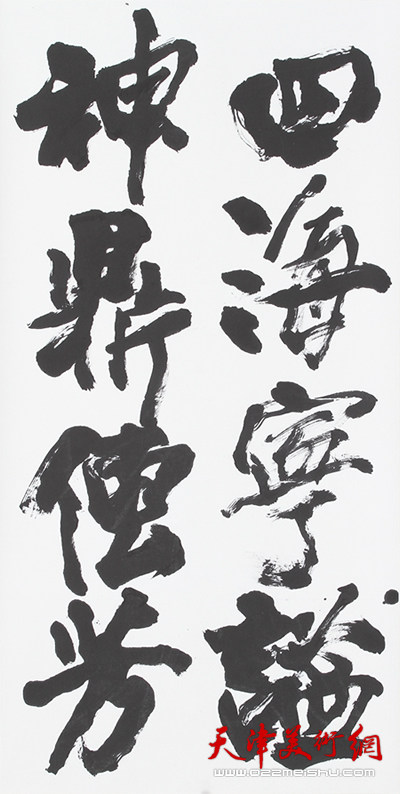 四海寧謐
神鼎芳
天津美術網
www.022meishu.com